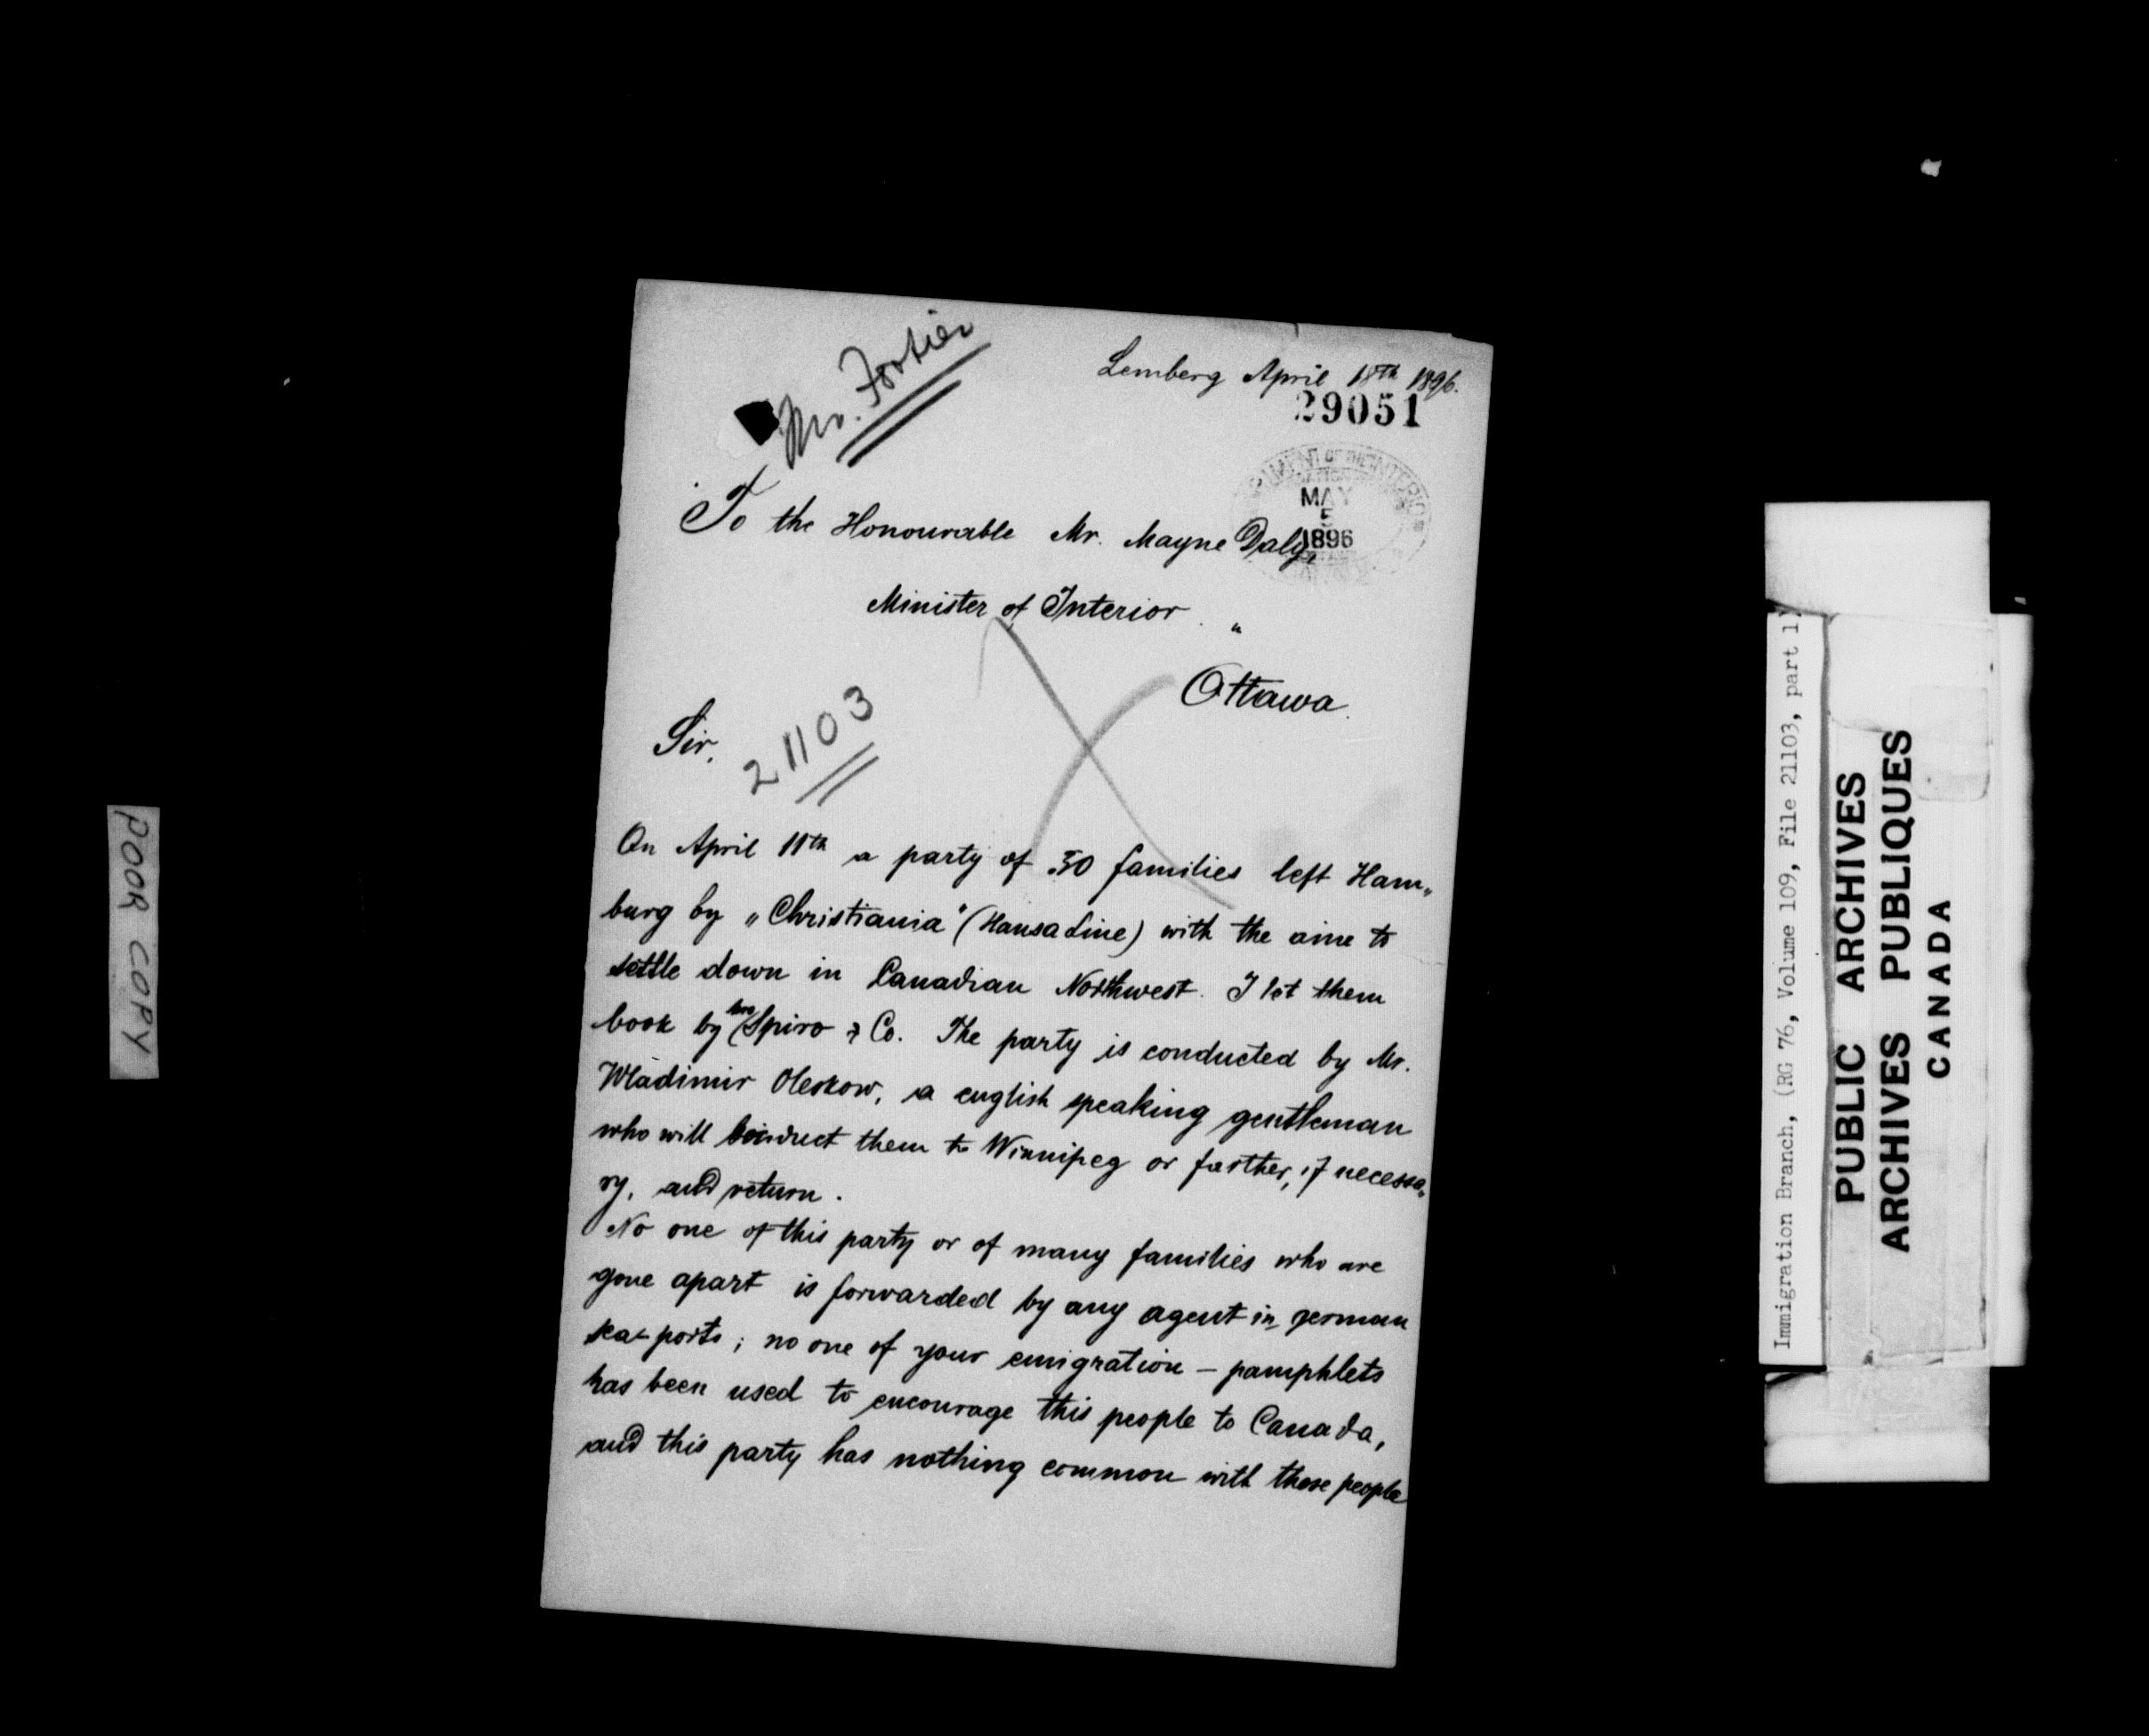 Mr. Fortier
Lemberg April 18th 1896.
29051
MAY
5
1896
To the Honourable Mr. Mayne Daly,
Minister of Interior
Ottawa.
Sir,
21103
On April 11th a party of 30 families left Ham„
burg by „Christiania" (Hansa Line) with the aine to
settle down in Canadian Northwest. I let them
book by Spiro & Co. The party is conducted by Mr.
Wladimir Oleskow, a english speaking gentleman
who will conduct them to Winnipeg or farther, if necessa„
ry, and return.
No one of this party or of many families who are
gone apart is forwarded by any agent in german
sea-ports; no one of your emigration - pamphlets
has been used to encourage this people to Canada,
and this party has nothing common with those people
POOR COPY
Immigration Branch, (RG 76, Volume 109, File 21103, part 1)
PUBLIC ARCHIVES
ARCHIVES PUBLIQUES
CANADA